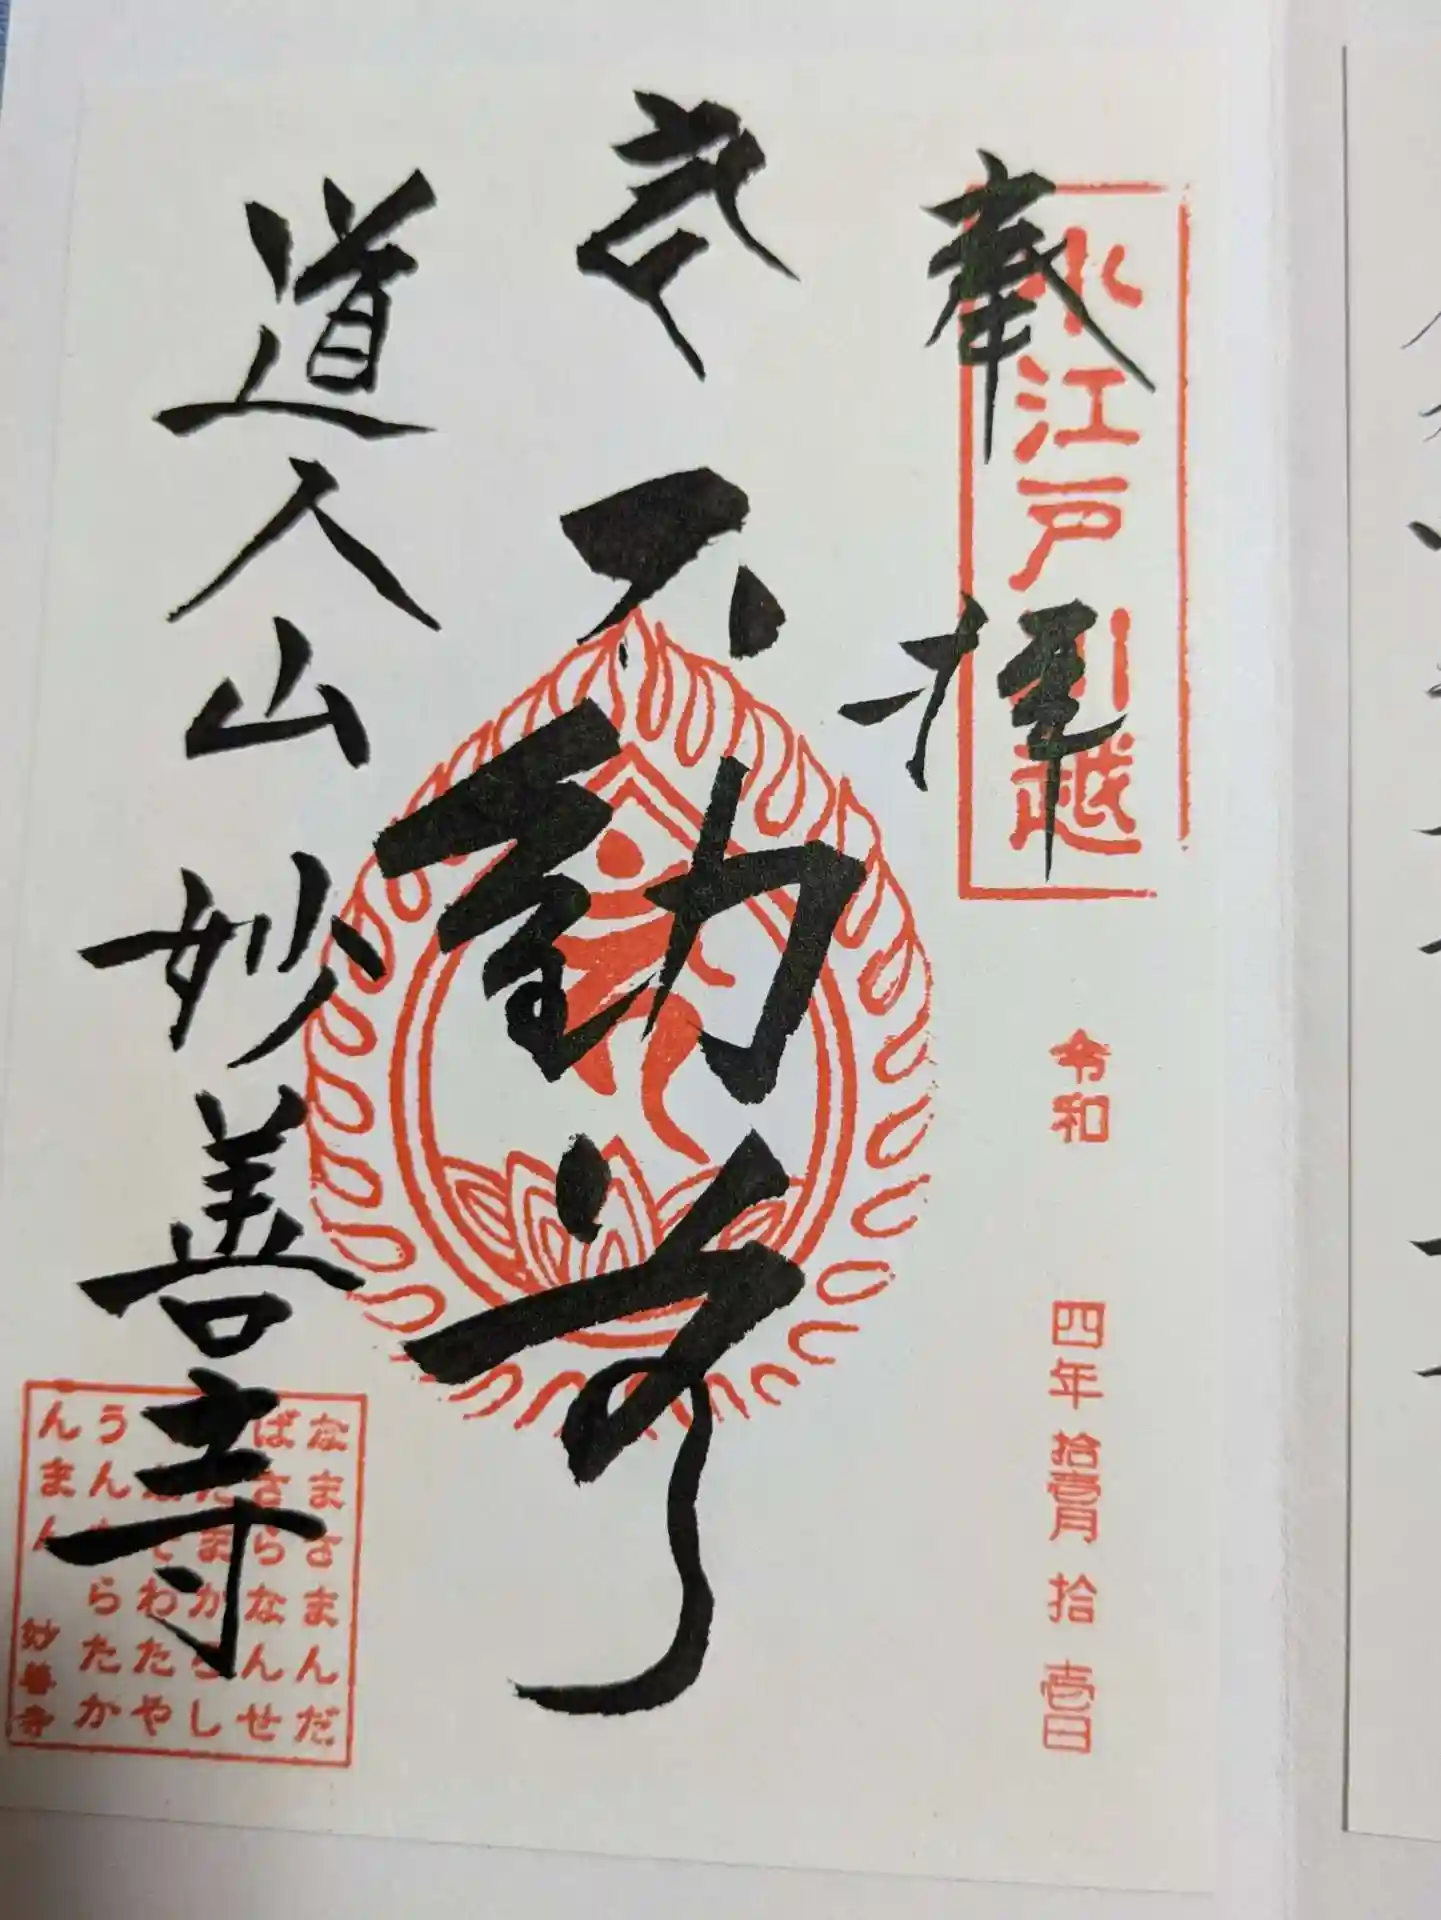 奉拝
小江戸川越
令和 四年 拾壹月 拾壹日
不動尊
道人山 妙善寺
なまさまんだ
ばさらなんせ
んだまかろし
やだそわたや
うんたらたか
んまん 妙善寺